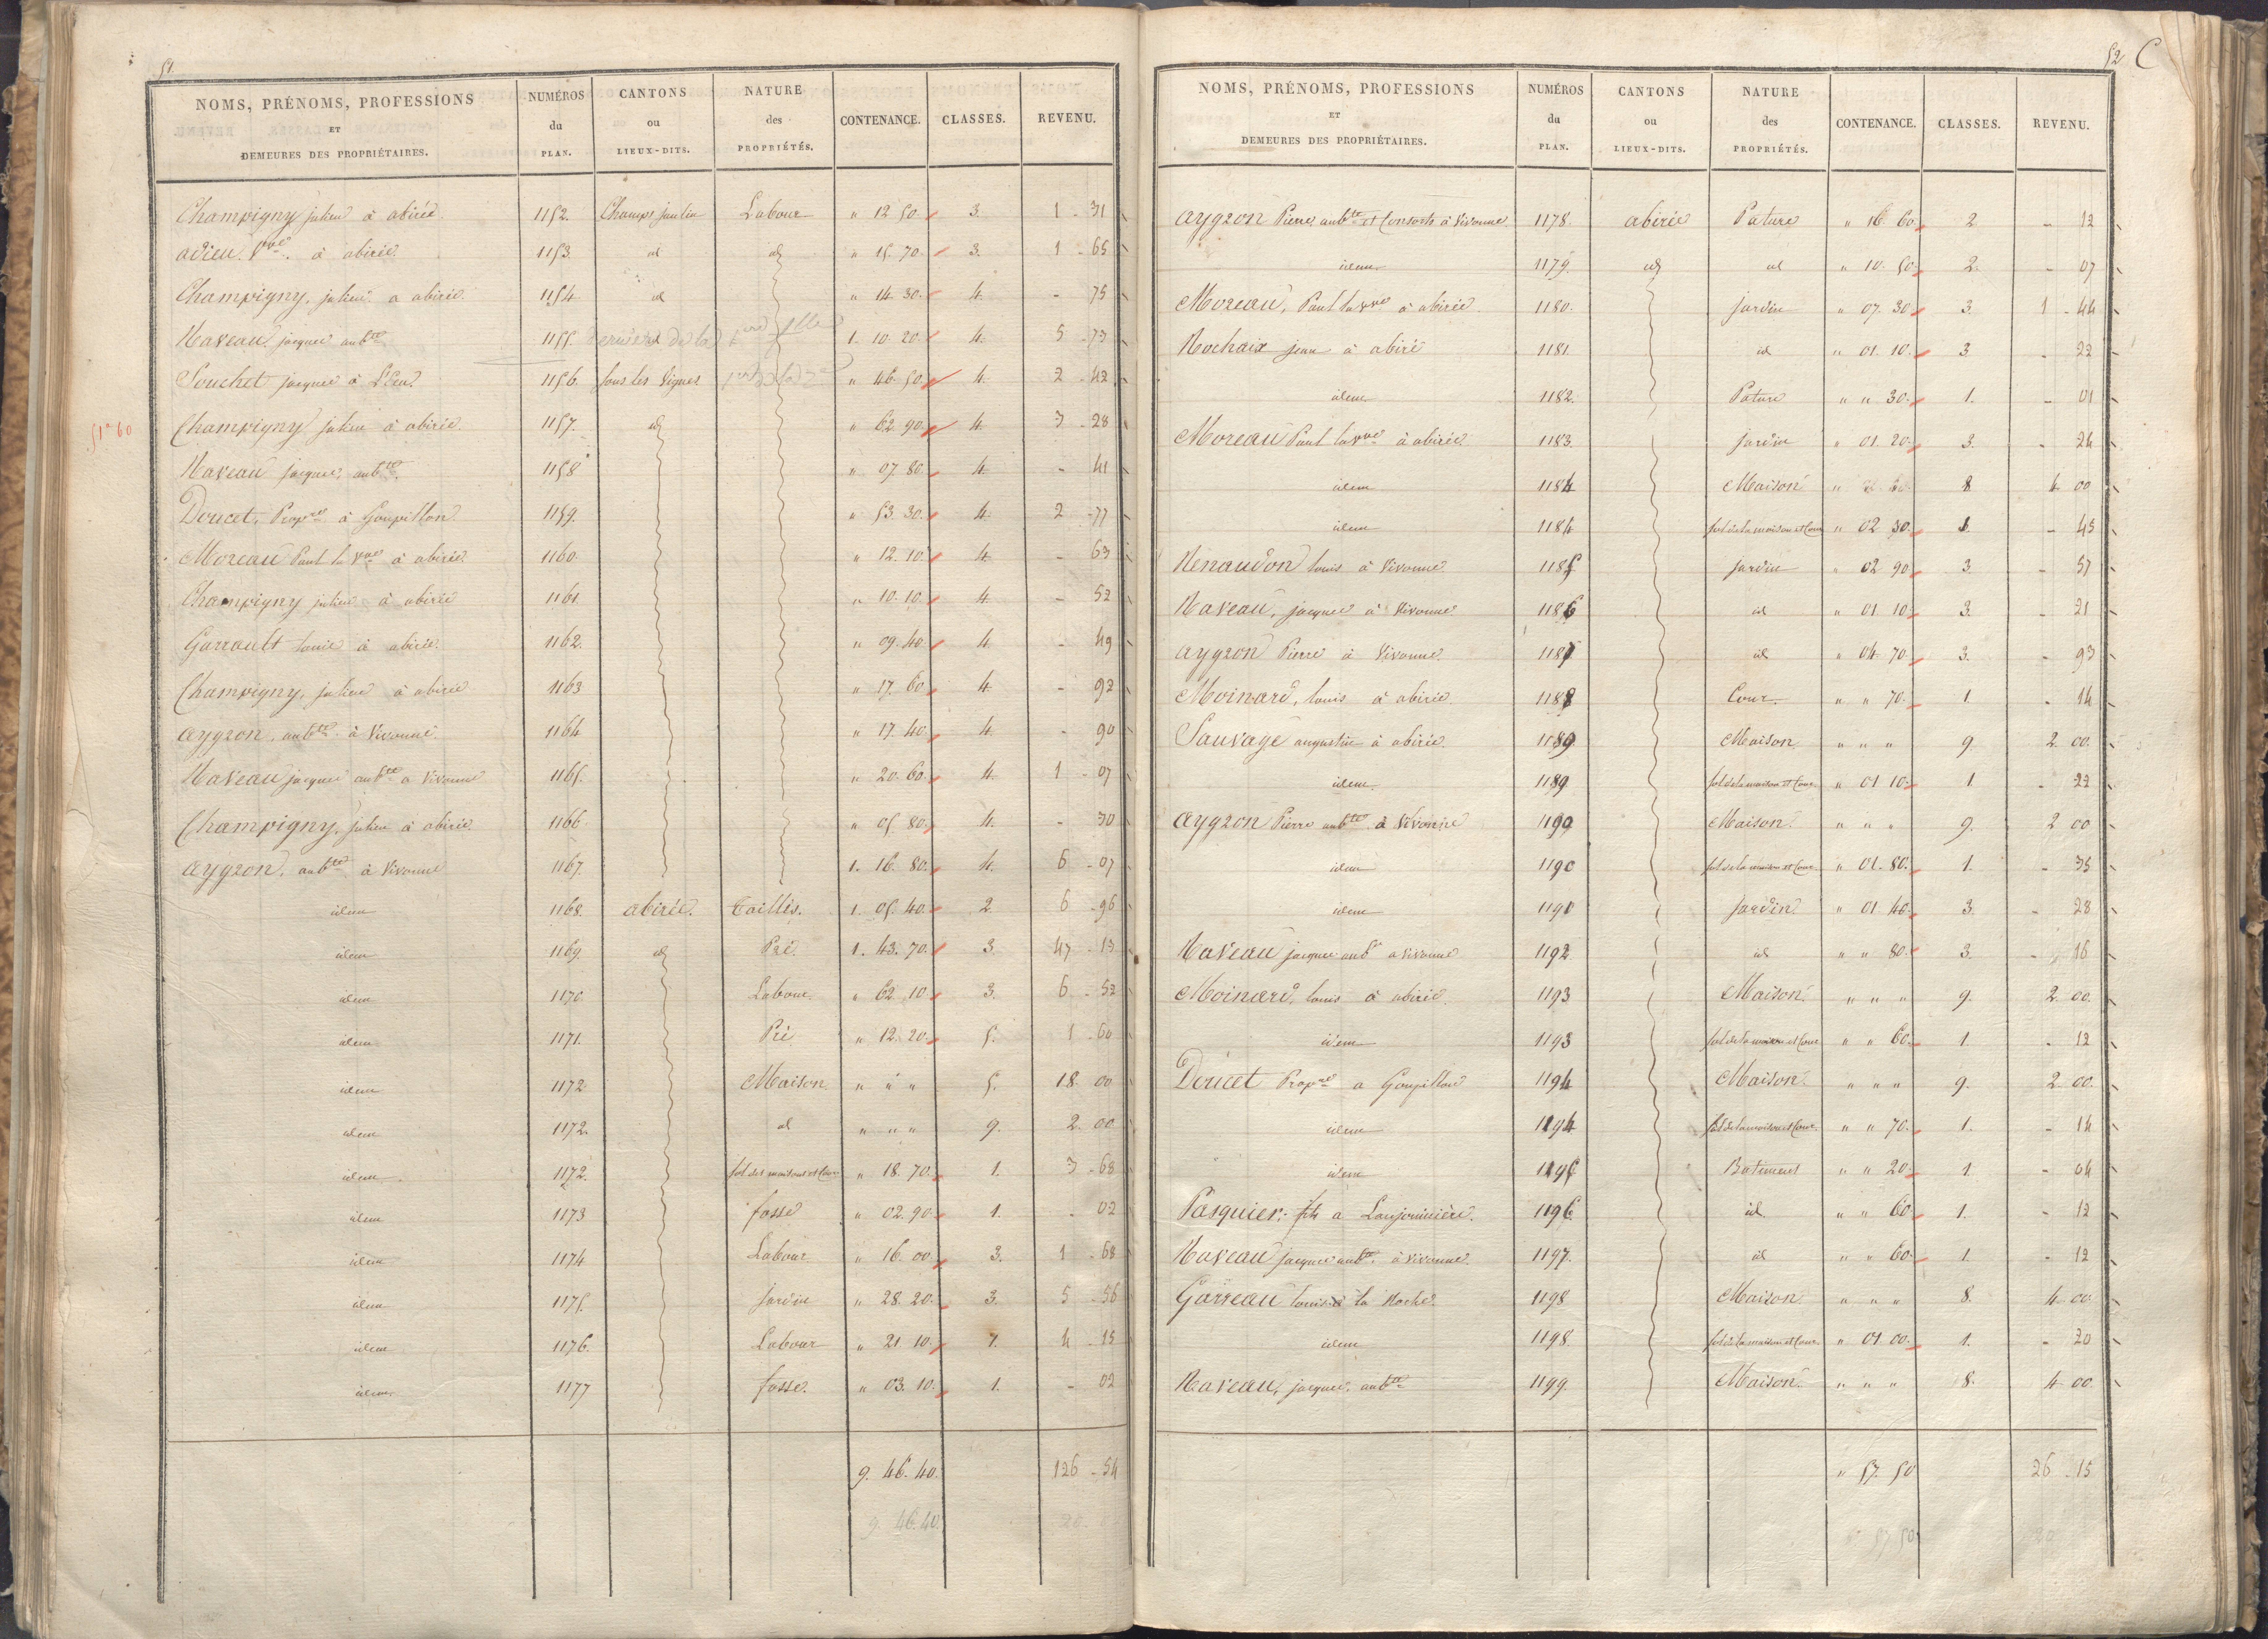 51.
NOMS, PRÉNOMS, PROFESSIONS ET DEMEURES DES PROPRIÉTAIRES. NUMÉROS du PLAN. CANTONS ou LIEUX-DITS. NATURE des PROPRIÉTÉS. CONTENANCE. CLASSES. REVENU.
Champigny julien à abirée. 1152. Champs jaulin Labour " 12 50. 3. 1 - 31
adieu Vve. à abirée. 1153. id id " 15. 70. 3. 1 - 65
Champigny, julien a abirée. 1154. id " 14 30. 4. - 75
Naveau jacques aubte 1155. 1. 10. 20. 4. 5 - 73
Souchet jacques à 1156. sous les Vignes " 46. 50. 4. 2 - 42
51a 60 Champigny julien à abirée. 1157. id " 62. 90. 4. 3 - 28
Naveau jacques, aubte. 1158 " 07. 80. 4. - 41
Doucet, Propre à Goupillon. 1159. " 53. 30. 4. 2 - 77
Moreau Paul la Vve à abirée. 1160. " 12. 10. 4. - 63
Champigny julien à abirée 1161. " 10. 10. 4. - 52
Garrault louis à abirée. 1162. " 09. 40. 4. - 49
Champigny, julien à abirée 1163 " 17. 60. 4. - 92
aygron, aubte à Vivonne. 1164 " 17. 40. 4. - 90
Naveau jacques aubte a Vivonne 1165. " 20. 60. 4. 1 - 07
Champigny, julien à abirée. 1166 " 05. 80. 4. - 30
aygron, aubte à Vivonne 1167. 1. 16. 80. 4. 6 - 07
idem 1168. abirée. Taillis. 1. 05. 40. 2. 6 - 96
idem 1169. id Pré. 1. 43. 70. 3. 47 - 13
idem 1170. Labour. " 62. 10. 3. 6 - 52
idem 1171. Pré " 12. 20. 5. 1 - 60
idem 1172 Maison " " " 5. 18. 00
idem 1172. id " " " 9. 2. 00
idem 1172. sol des maisons et Cour " 18. 70. 1. 3 - 68
idem 1173 fossé " 02. 90. 1. - 02
idem 1174 Labour " 16. 00. 3. 1 - 68
idem 1175. jardin " 28. 20. 3. 5 - 56
idem 1176. Labour " 21 10. 1. 4 - 15
idem 1177 fossé. " 03. 10. 1. - 02
9. 46. 40. 126 - 54
9. 46. 40.
52 C
NOMS, PRÉNOMS, PROFESSIONS ET DEMEURES DES PROPRIÉTAIRES. NUMÉROS du PLAN. CANTONS ou LIEUX-DITS. NATURE des PROPRIÉTÉS. CONTENANCE. CLASSES. REVENU.
aygron Pierre, aubte et Consorts à Vivonne 1178. abirée Pature " 16. 60. 2 - 12
idem 1179. id id " 10. 50. 2. - 07
Moreau, Paul la Vve à abirée. 1180. jardin " 07. 30. 3. 1 - 44
Rochaix jean à abirée 1181. id " 01. 10. 3 - 22
idem 1182. Pature " " 30. 1. - 01
Moreau Paul la Vve à abirée 1183. jardin " 01. 20. 3. - 24
idem 1184 Maison 8 4 00
idem 1184 sol de la maison et Cour " 02 30. 1. - 45
Renaudon louis à Vivonne 1185 jardin " 02 90. 3. - 57
Naveau, jacques à Vivonne. 1186 id " 01. 10. 3. - 21
aygron Pierre à Vivonne. 1187 id " 04. 70. 3. - 93
Moinard, louis à abirée. 1188 Cour. " " 70. 1. - 14
Sauvage augustin à abirée. 1189. Maison " " " 9. 2. 00.
idem. 1189. sol de la maison et Cour. " 01 10. 1 - 22
aygron Pierre aubte à Vivonne 1190 Maison. " " " 9. 2 00
idem 1190 sol de la maison et Cour. " 01. 80. 1. - 35
idem 1191 jardin " 01. 40. 3. - 28
Naveau jacques aubte a vivonne 1192 id " " 80. 3. - 16
Moinard, louis à abirée. 1193 Maison. " " " 9. 2. 00.
idem 1193 sol de la maison et Cour " " 60. 1. - 12
Doucet Propre a Goupillon 1194 Maison. " " " 9. 2 00.
idem 1194 sol de la maison et Cour. " " 70. 1. - 14
idem 1195 Batiment " " 20. 1. - 04
Pasquier, fils a Laujouinière. 1196 id. " " 60. 1. - 12
Naveau jacques aubte à vivonne. 1197. id " " 60. 1. - 12
Garreau louis à la Roche. 1198 Maison. " " " 8. 4 00.
idem 1198. sol de la maison et Cour. " 01. 00. 1. - 20
Naveau, jacques, aubte 1199. Maison. " " " 8. 4 00
" 57. 50 26 - 15
57 50